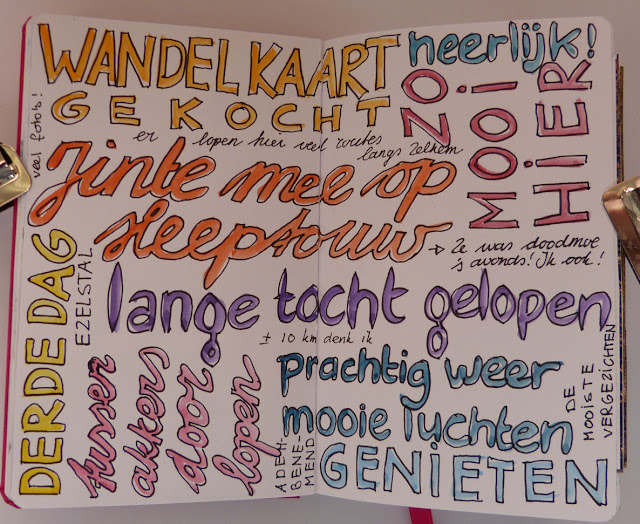 WANDELKAART
GEKOCHT
veel foto's!
er lopen hier veel routes
langs Zelhem
Jinte mee op
sleeptouw
Ze was doodmoe
's avonds! Ik ook!
neerlijk!
ZO
MOOI
HIER
DERDE DAG
EZELSTAL
lange tocht gelopen
± 10 km denk ik
tussen
akkers
door
lopen
prachtig weer
mooie luchten
GENIETEN
ADEM-
BENE-
MEND
DE
MOOISTE
VERGEZICHTEN